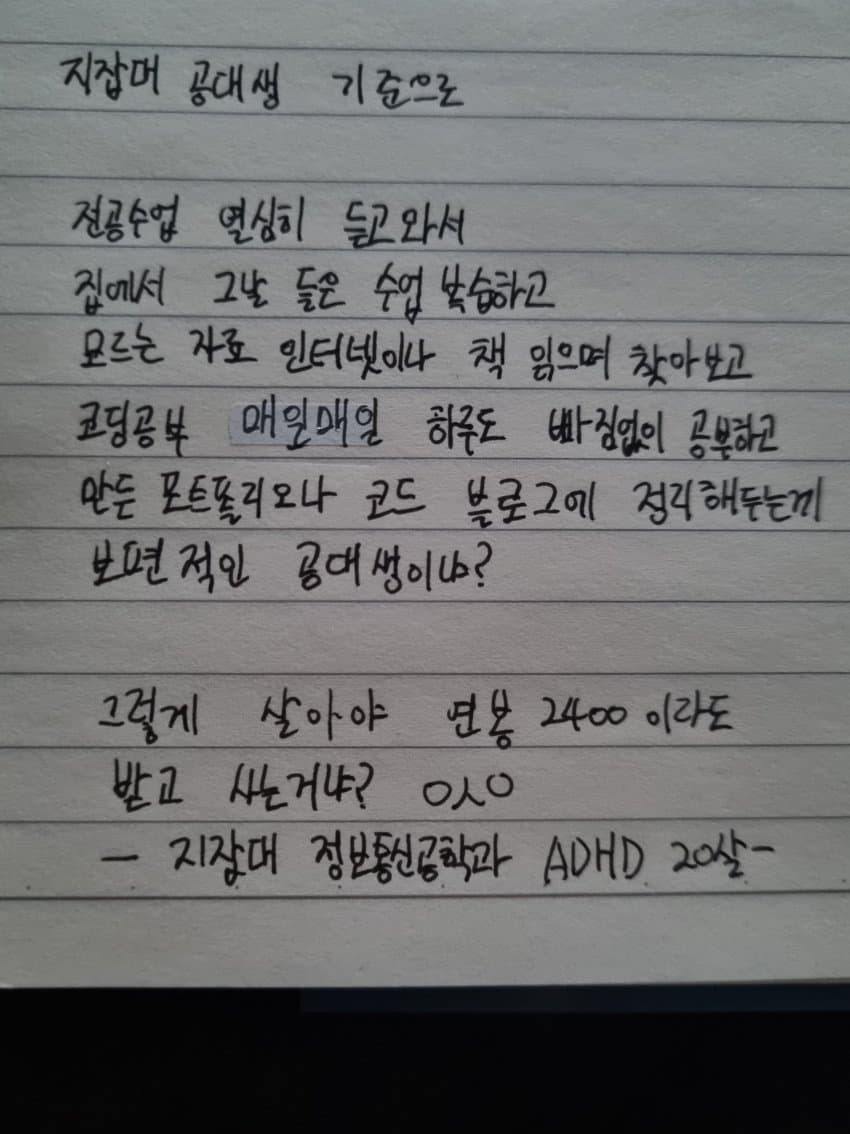 지잡대 공대생 기준으로
전공수업 열심히 듣고와서
집에서 그날 들은 수업 복습하고
모르는 자료 인터넷이나 책 읽으며 찾아보고
코딩공부 매일매일 하루도 빠짐없이 공부하고
만든 포트폴리오나 코드 블로그에 정리해두는게
보편적인 공대생이냐?
그렇게 살아야 연봉 2400 이라도
받고 사는거냐? ㅇㅅㅇ
- 지잡대 정보통신공학과 ADHD 20살-